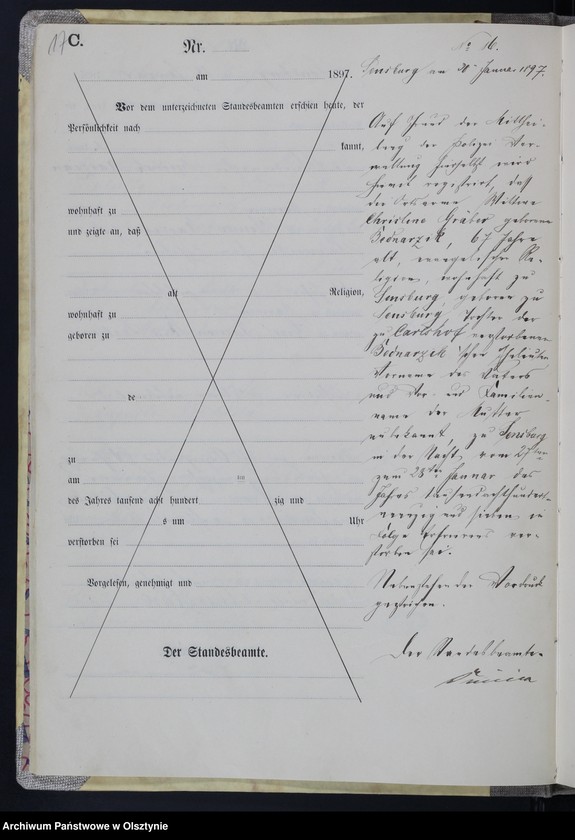 17 C.
Nr.
am 1897.
Vor dem unterzeichneten Standesbeamten erschien heute, der
Persönlichkeit nach
kannt,
wohnhaft zu
und zeigte an, daß
alt Religion,
wohnhaft zu
geboren zu
de
zu
am
des Jahres tausend acht hundert zig und
s um Uhr
verstorben sei
Vorgelesen, genehmigt und
Der Standesbeamte.
No 16.
Sensburg am 30 Januar 1897.
Auf Grund der Mitthei-
lung der Polizei Ver-
waltung hierselbst wird
hiermit registrirt, daß
die Ortsarme Wittwe
Christine Gräber geborene
Bednarzik, 67 Jahre
alt, evangelischer Re-
ligion, wohnhaft zu
Sensburg, geboren zu
Sensburg, Tochter der
zu Carlshof verstorbenen
Bednarzik'schen Eheleute
Vorname des Vaters
und Vor- und Familien-
name der Mutter
unbekannt, zu Sensburg
in der Nacht vom 27ten
zum 28ten Januar des
Jahres tausendachthundert
neunzig und sieben in
Folge Erfrierens ver-
storben sei.
Nebenstehender Vordruck
gestrichen.
Der Standesbeamte
Archiwum Państwowe w Olsztynie